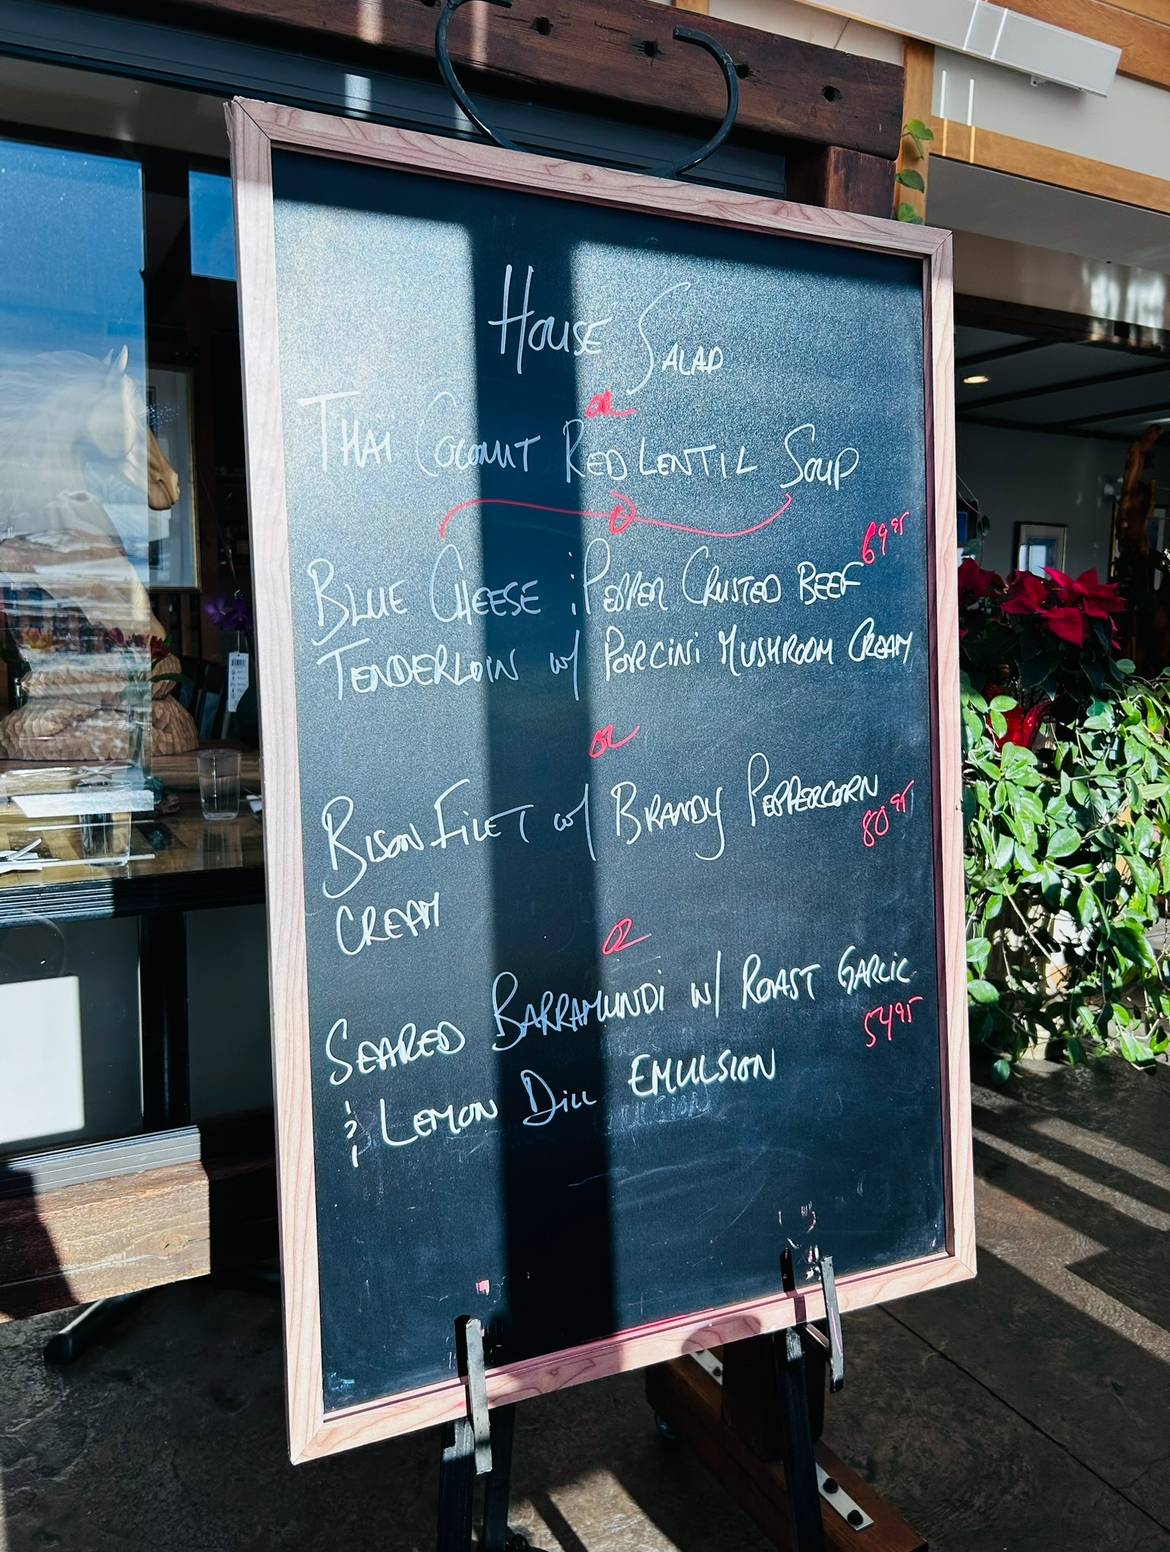 House Salad
OR
Thai Coconut Red Lentil Soup
Blue Cheese & Pepper Crusted Beef 69.95
Tenderloin w/ Porcini Mushroom Cream
OR
Bison Filet w/ Brandy Peppercorn 80.95
Cream
OR
Seared Barramundi w/ Roast Garlic 54.95
& Lemon Dill Emulsion